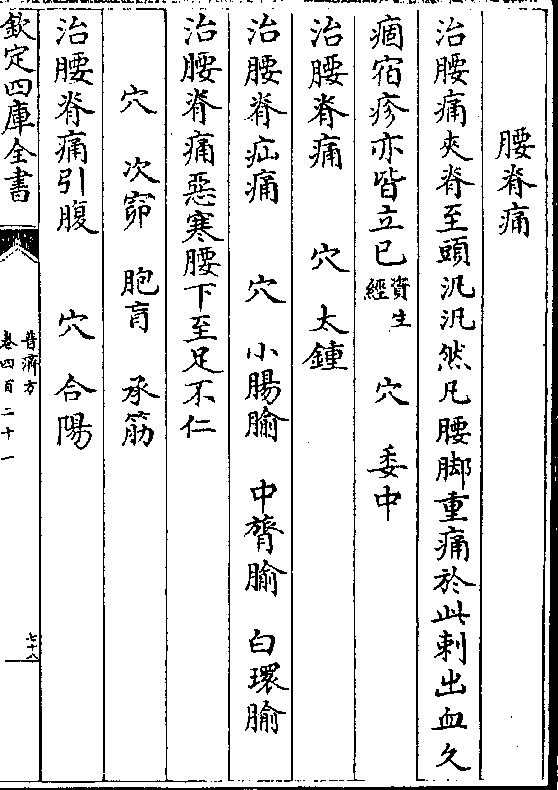 腰脊痛
治腰痛夾脊至頭汎汎然凡腰脚重痛於此刺出血久
痼宿疹亦皆立已資生經 穴 委中
治腰脊痛 穴 太鍾
治腰脊疝痛 穴 小腸腧 中膂腧 白環腧
治腰脊痛惡寒腰下至足不仁
穴 次窌 胞肓 承筋
治腰脊痛引腹 穴 合陽
欽定四庫全書
普濟方
卷四百二十一
七十八